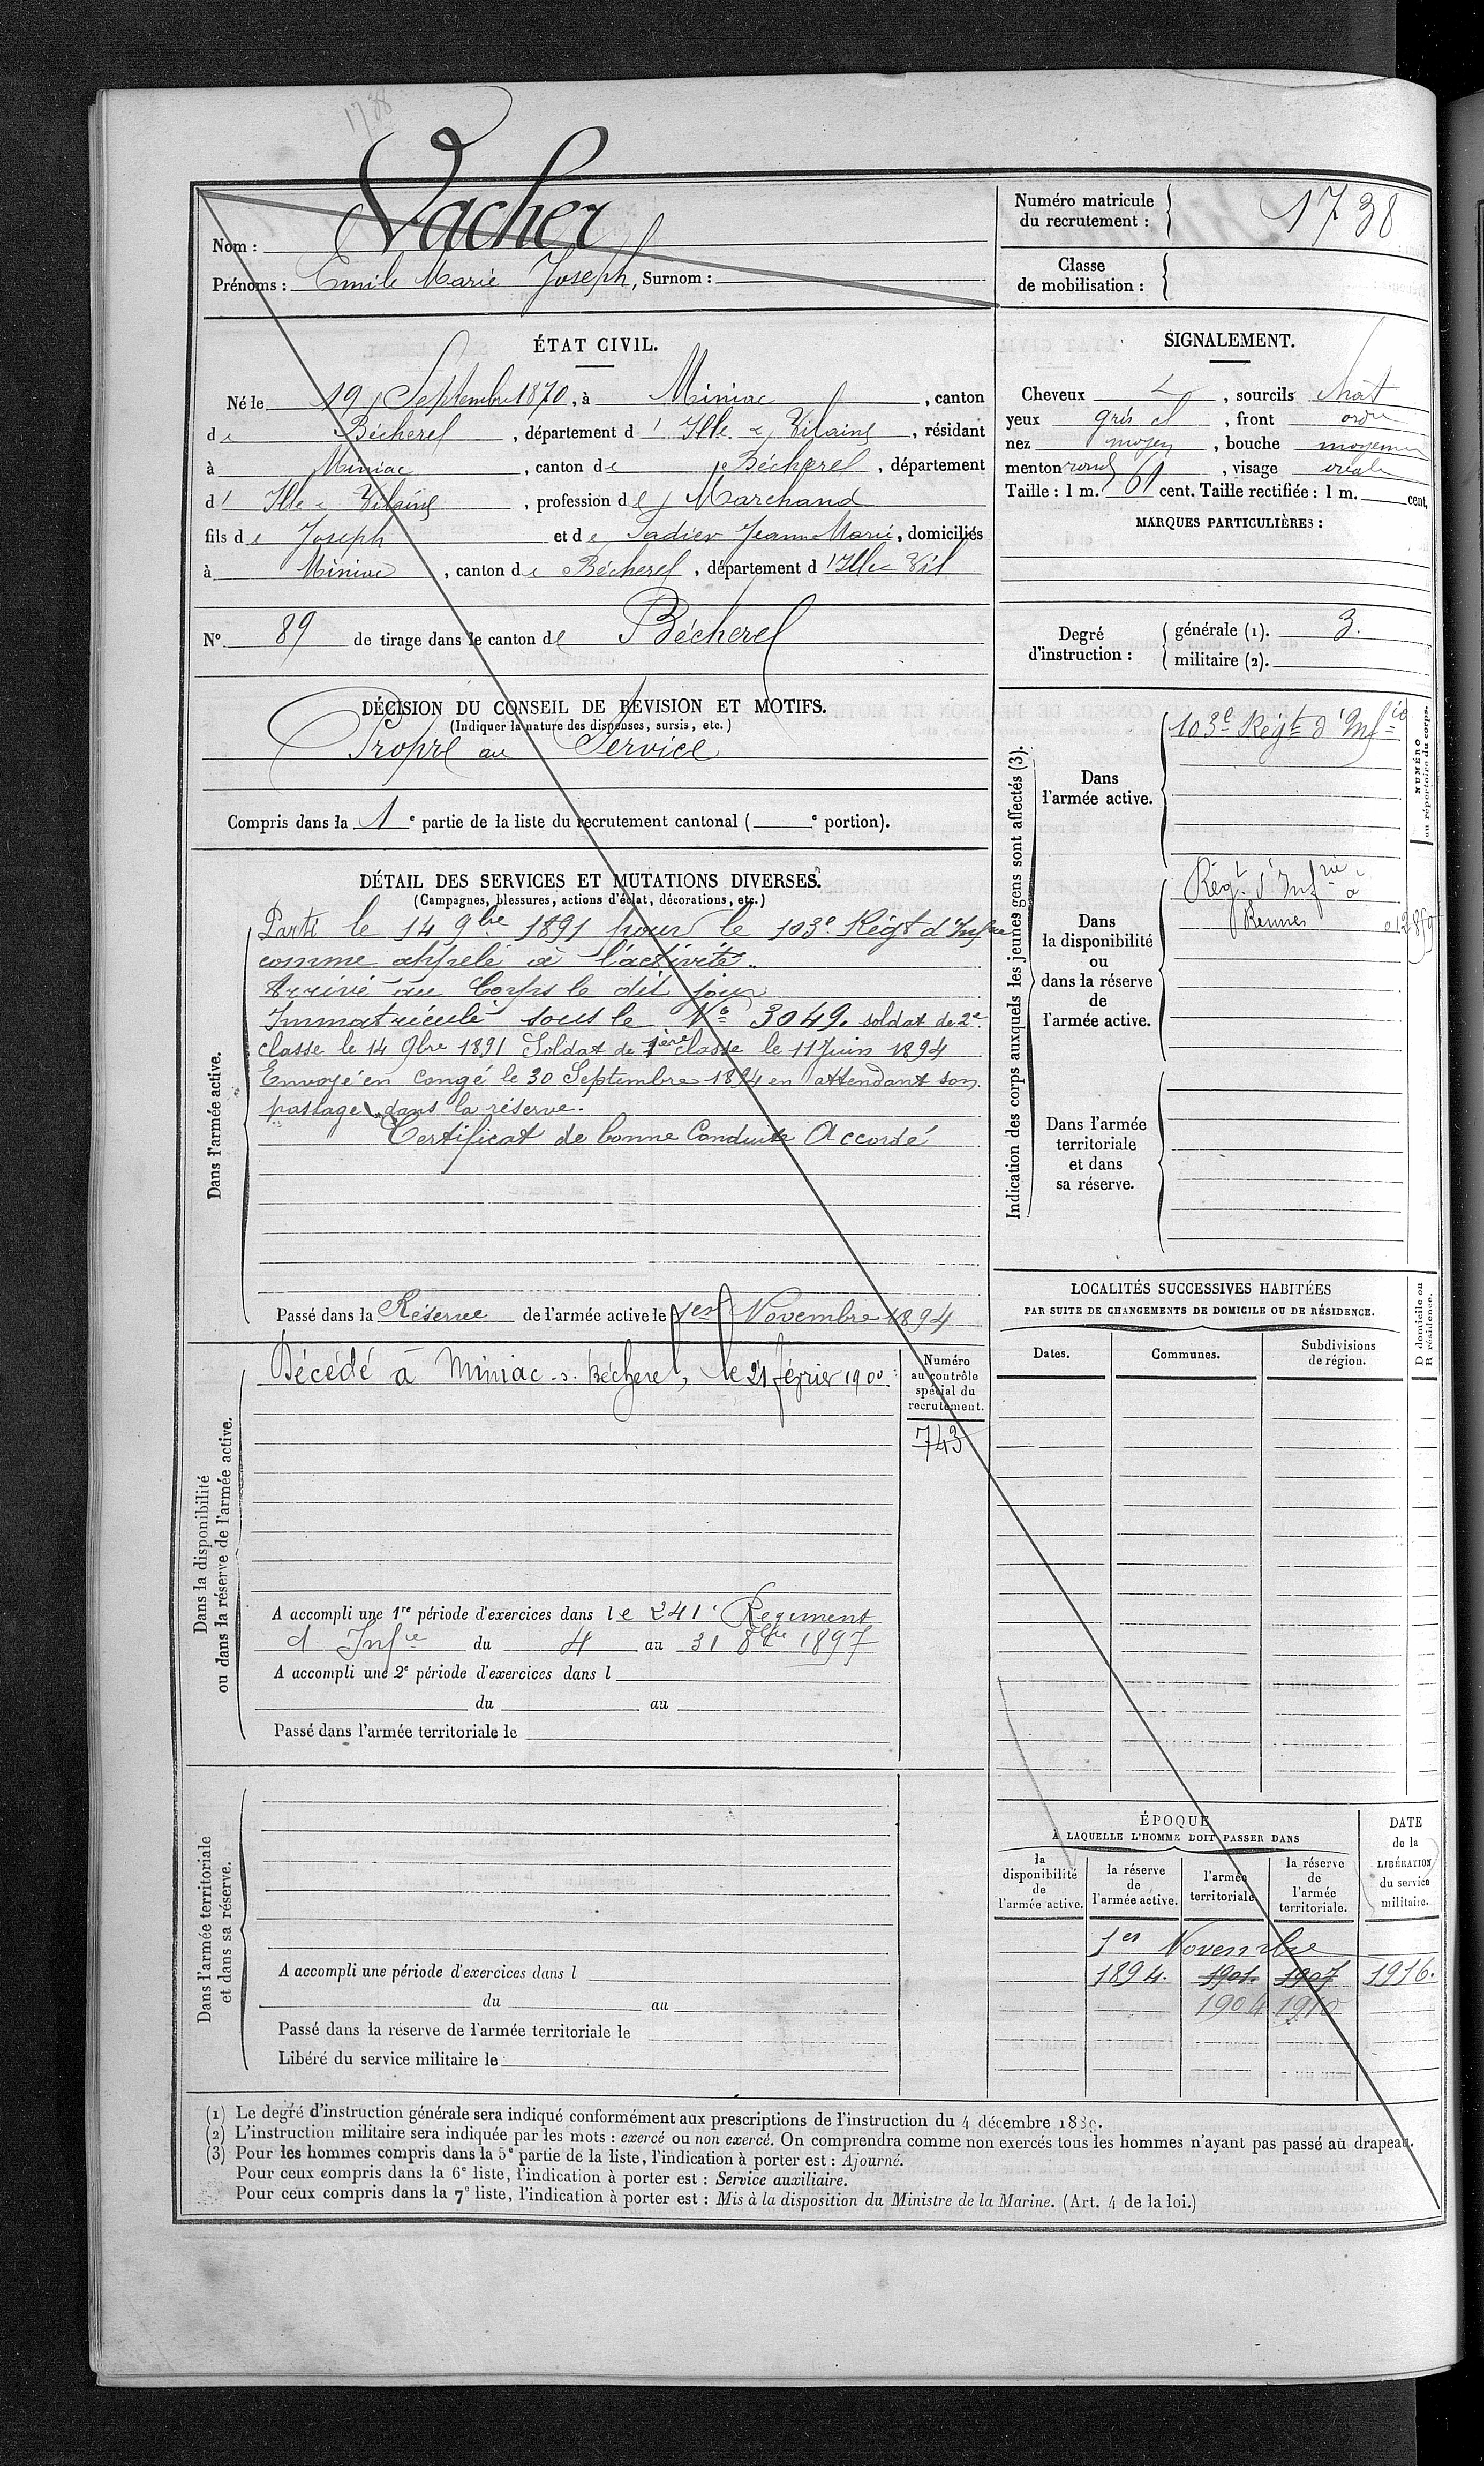 1738
Nom : Vacher
Prénoms : Emile Marie Joseph, Surnom :
Numéro matricule du recrutement : 1738
Classe de mobilisation :
ÉTAT CIVIL.
Né le 19 Septembre 1870, à Miniac, canton
de Bécherel, département d'Ille & Vilaine, résidant
à Miniac, canton de Bécherel, département
d'Ille & Vilaine, profession de Marchand
fils de Joseph et de Sadier Jeanne Marie, domiciliés
à Miniac, canton de Bécherel, département d'Ille & Vil
N° 89 de tirage dans le canton de Bécherel
SIGNALEMENT.
Cheveux, sourcils chat
yeux gris cl, front ordre
nez moyen, bouche moyenne
menton rond, visage ovale
Taille : 1 m. 61 cent. Taille rectifiée : 1 m. cent.
MARQUES PARTICULIÈRES :
Degré d'instruction :
générale (1). 3.
militaire (2).
DÉCISION DU CONSEIL DE REVISION ET MOTIFS.
(Indiquer la nature des dispenses, sursis, etc.)
Propre au Service
Compris dans la 1e partie de la liste du recrutement cantonal ( e portion).
DÉTAIL DES SERVICES ET MUTATIONS DIVERSES.
(Campagnes, blessures, actions d'éclat, décorations, etc.)
Dans l'armée active.
Parti le 14 9bre 1891 pour le 103e Régt d'Infrie
comme appelé à l'activité.
Arrivé au Corps le dit jour
Immatriculé sous le No 3049. soldat de 2e
classe le 14 9bre 1891 Soldat de 1ère classe le 11 Juin 1894
Envoyé en congé le 30 Septembre 1894 en attendant son
passage dans la réserve.
Certificat de bonne Conduite Accordé
Passé dans la Réserve de l'armée active le 1er Novembre 1894
Dans la disponibilité
ou dans la réserve de l'armée active.
Décédé à Miniac-s-Bécherel, le 21 février 1900
Numéro
au contrôle
spécial du
recrutement.
743
A accompli une 1re période d'exercices dans le 241e Régiment
d'Infie du 4 au 31 8bre 1897
A accompli une 2e période d'exercices dans l
du au
Passé dans l'armée territoriale le
Dans l'armée territoriale
et dans sa réserve.
A accompli une période d'exercices dans l
du au
Passé dans la réserve de l'armée territoriale le
Libéré du service militaire le
Indication des corps auxquels les jeunes gens sont affectés (3).
NUMÉRO
au répertoire du corps.
Dans
l'armée active.
103e Régt d'Infie
Dans
la disponibilité
ou
dans la réserve
de
l'armée active.
Régt d'Infrie à
Rennes
Dans l'armée
territoriale
et dans
sa réserve.
LOCALITÉS SUCCESSIVES HABITÉES
PAR SUITE DE CHANGEMENTS DE DOMICILE OU DE RÉSIDENCE.
Dates. Communes. Subdivisions de région.
D domicile ou
R résidence.
ÉPOQUE
À LAQUELLE L'HOMME DOIT PASSER DANS
la disponibilité de l'armée active.
la réserve de l'armée active.
l'armée territoriale
la réserve de l'armée territoriale.
DATE de la LIBÉRATION du service militaire.
1er Novembre
1894. 1901. 1907 1916.
1904 1910
(1) Le degré d'instruction générale sera indiqué conformément aux prescriptions de l'instruction du 4 décembre 1889.
(2) L'instruction militaire sera indiquée par les mots : exercé ou non exercé. On comprendra comme non exercés tous les hommes n'ayant pas passé au drapeau.
(3) Pour les hommes compris dans la 5e partie de la liste, l'indication à porter est : Ajourné.
Pour ceux compris dans la 6e liste, l'indication à porter est : Service auxiliaire.
Pour ceux compris dans la 7e liste, l'indication à porter est : Mis à la disposition du Ministre de la Marine. (Art. 4 de la loi.)